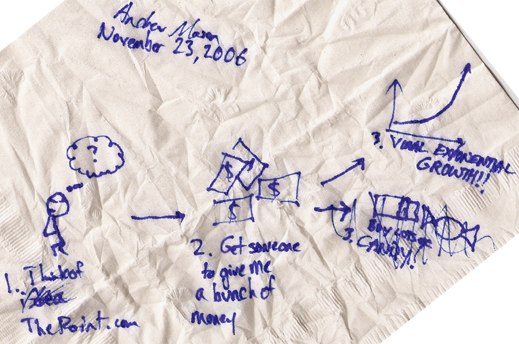 Andrew Mason
November 23, 2006
?
$
$
$
$
1. Think of
Idea
ThePoint.com
2. Get someone
to give me
a bunch of
money
3. VIRAL EXPONENTIAL
GROWTH!!
3. BUY LOTS OF
CANDY!!